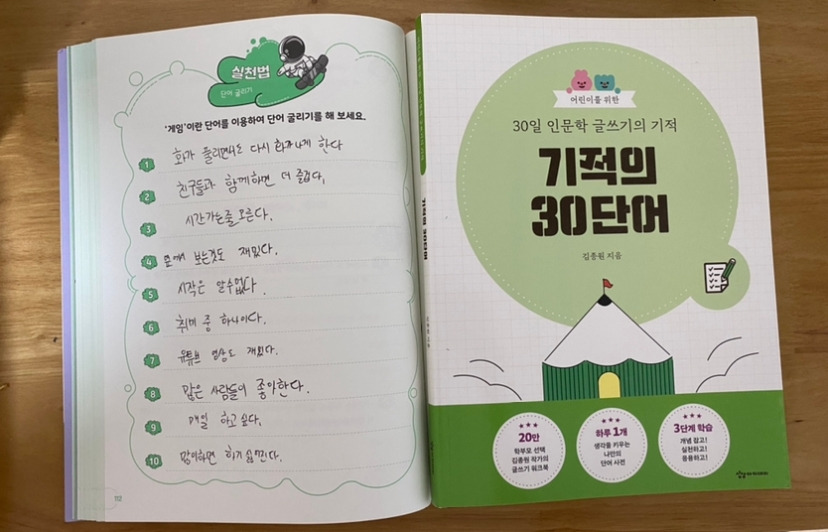 실천법
단어 굴리기
'게임'이란 단어를 이용하여 단어 굴리기를 해 보세요.
1 화가 풀리면서도 다시 화가나게 한다
2 친구들과 함께하면 더 즐겁다.
3 시간가는줄 모른다.
4 보는것도 재밌다.
5 시작은 알수없다.
6 취미 중 하나이다.
7 유튜브 영상도 재밌다.
8 많은 사람들이 좋아한다.
9 매일 하고싶다.
10 많이하면
112
기적의 30단어
어린이를 위한
30일 인문학 글쓰기의 기적
기적의
30단어
김종원 지음
★★★
20만
학부모 선택
김종원 작가의
글쓰기 워크북
★★★
하루 1개
생각을 키우는
나만의
단어 사전
★★★
3단계 학습
개념 잡고!
실천하고!
응용하고!